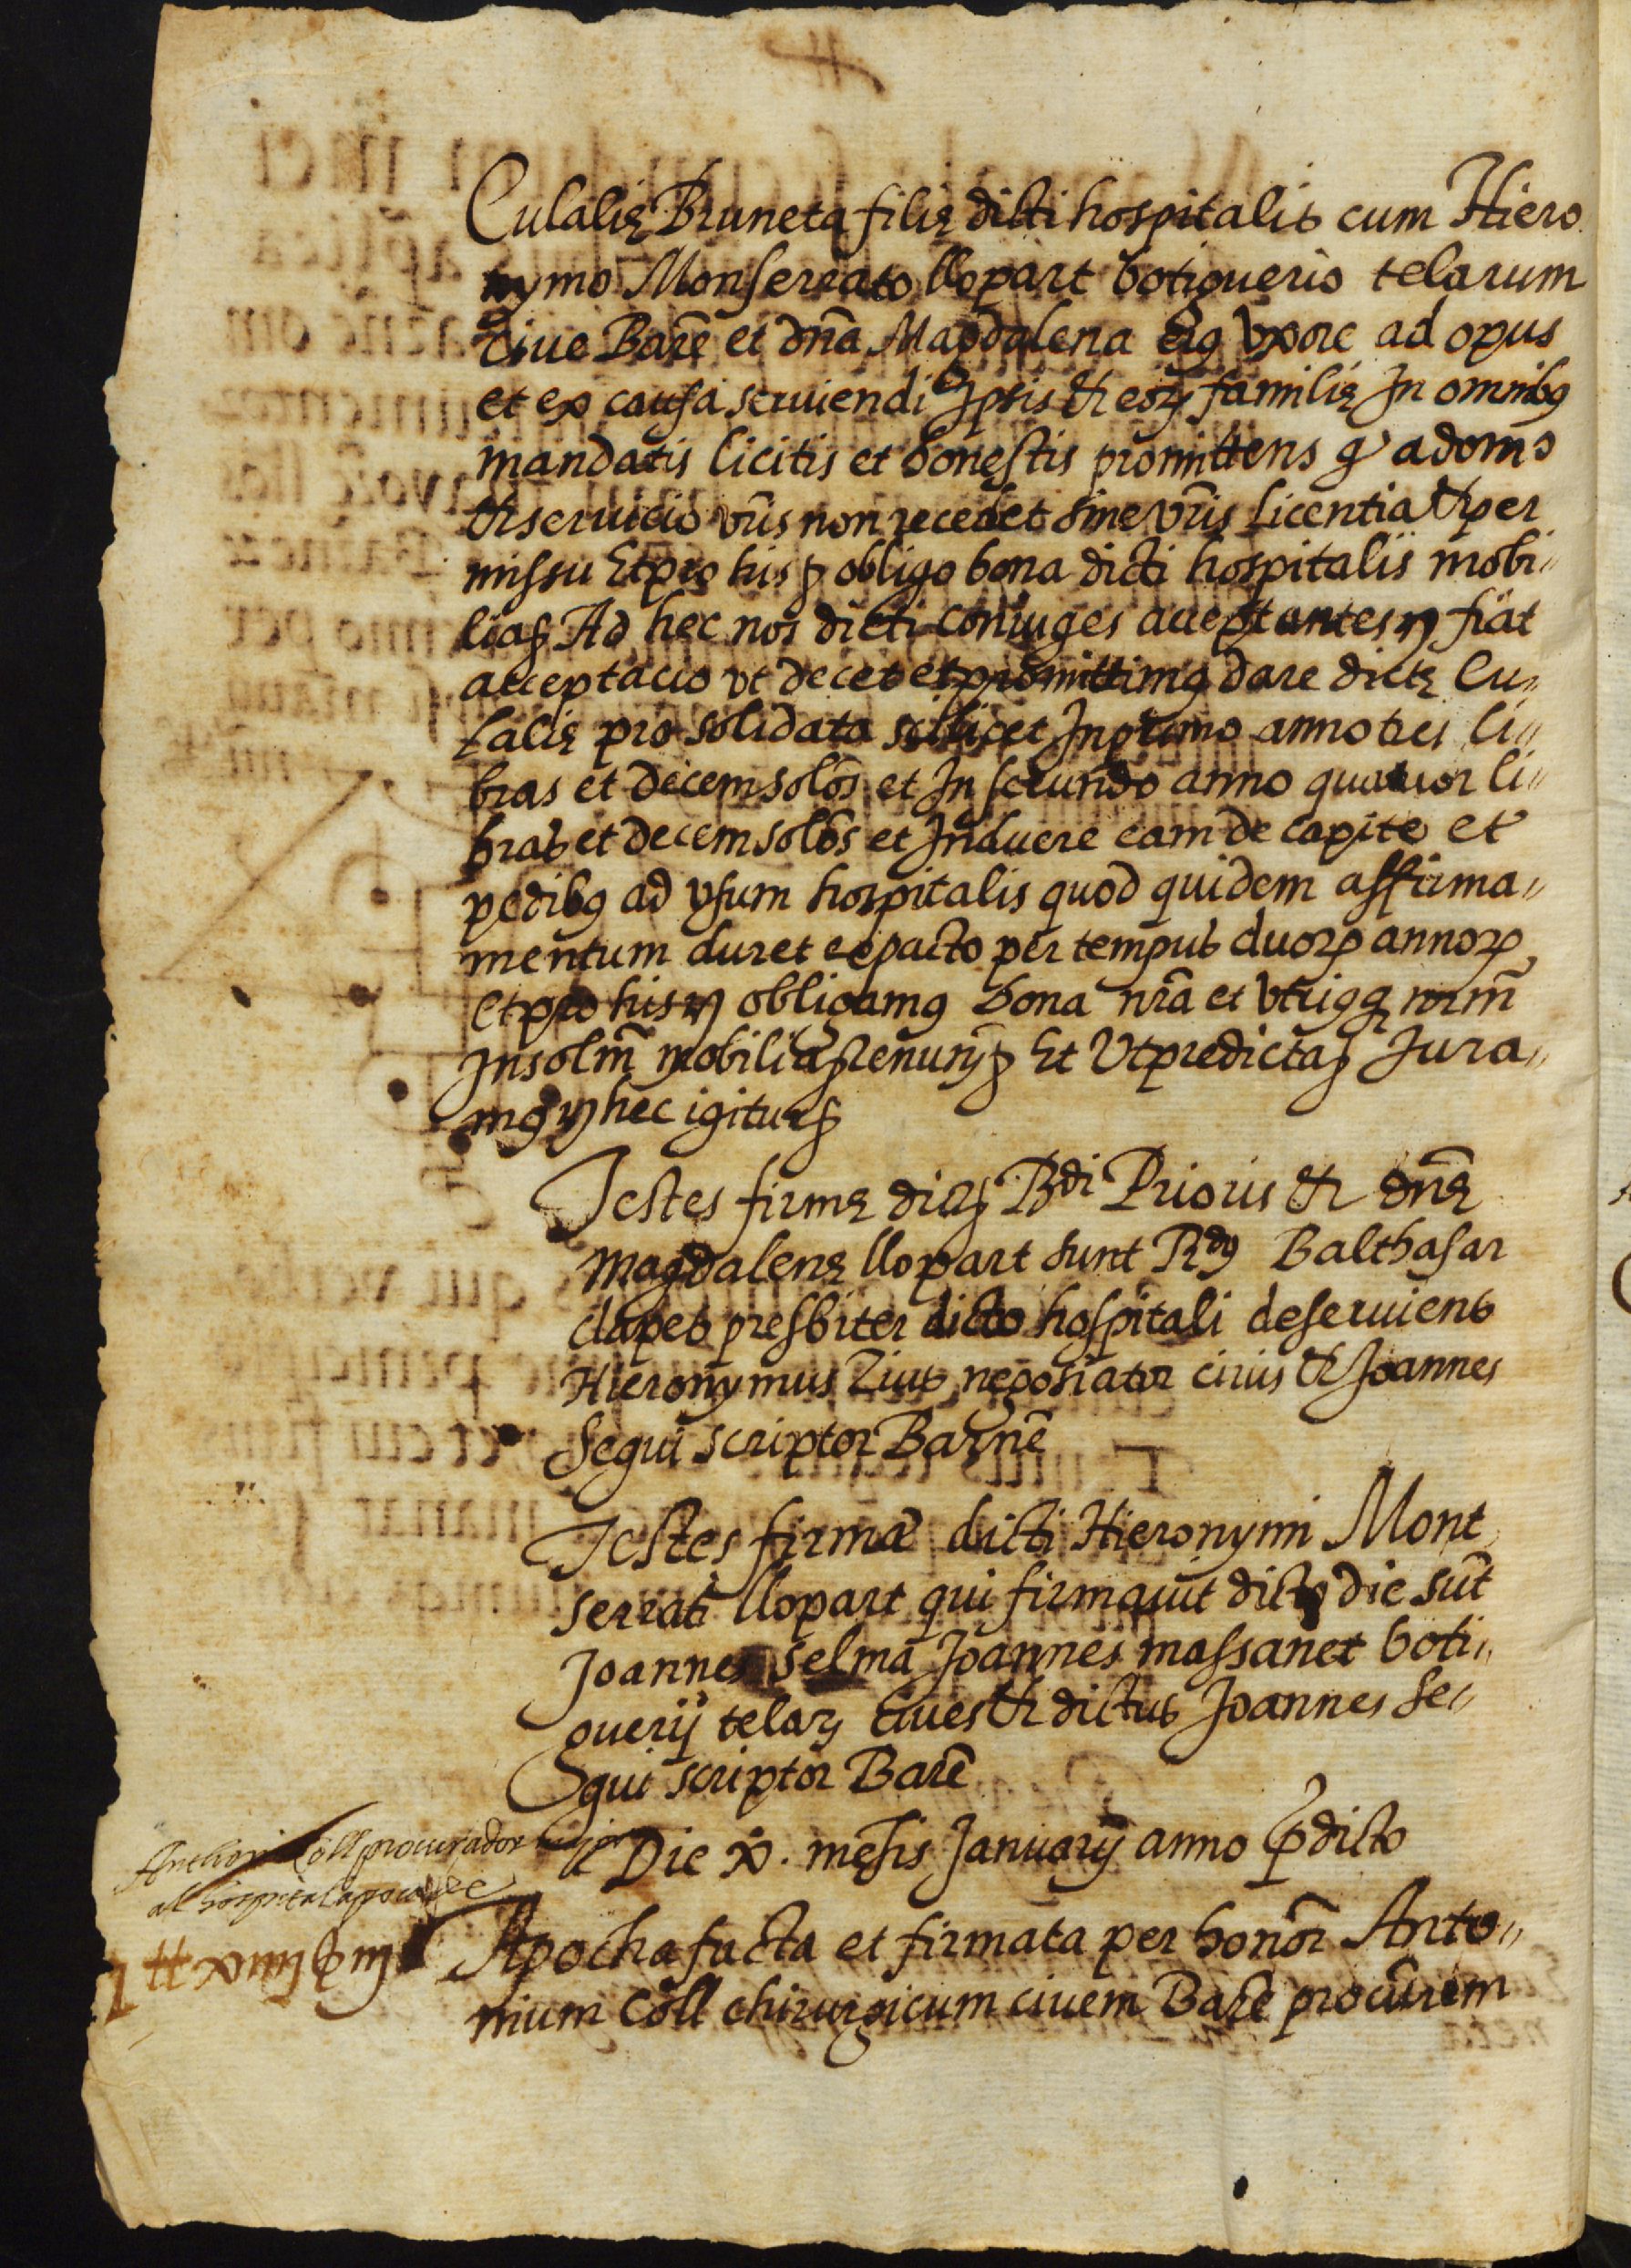 Eulalię Bruneta filię dicti hospitalis cum Hiero
nymo Monserrato llopart botiguerio telarum
Ciue Barẽ et dña Magdalena eiꝰ vxore ad opus
et ex causa seruiendi Ipsis & eoꝝ familię In omnibꝰ
mandatis licitis et honestis promittens ꝙ a domo
& seruicio vr̃is non recedet sine vr̃is licentia & per
missu Et pro his ⁊ obligo bona dicti hospitalis mobi〃
lia⁊ Ad hec nos dicti coniuges acceptantes ⁊ fiat
acceptacio vt decet et promittimꝰ dare dictę Eu〃
lalię pro solidata scilicet In primo anno tres li〃
bras et decem solõs et In secundo anno quatuor li〃
bras et decem solõs et Induere eam de capite et
pedibꝰ ad vsum hospitalis quod quidem affirma〃
mentum duret ex pacto per tempus duoꝝ annoꝝ
Et pro his ⁊ obligamꝰ bona nr̃a et vtriꝰqꝫ nr̃m
Insolm̃ mobilia⁊ renunꝰ ⁊ Et Vt predicta⁊ Jura〃
mꝰ ⁊ hec igitur⁊
Testes firmę dict⁊ Rdi Prioris & dñę
Magdalenę llopart sunt Rdꝰ Balthasar
clapes presbiter dicto hospitali deseruiens
Hieronymus Zius negotiator ciuis & Joannes
Segui scriptor Barnẽ
Testes firmę dicti Hieronymi Mont
serrati llopart qui firmauit dicto die sũt
Joannes Selma Joannes massanet boti〃
guerij telaꝝ ciues & dictus Joannes Se〃
gui scriptor Barẽ
Die x. mẽsis Januarij anno p̱dicto
Anthoni Coll procurador
al hospital apoca
Apocha facta et firmata per honoꝛ̃ Anto〃
nium Coll chirurgicum ciuem Barẽ procũrem